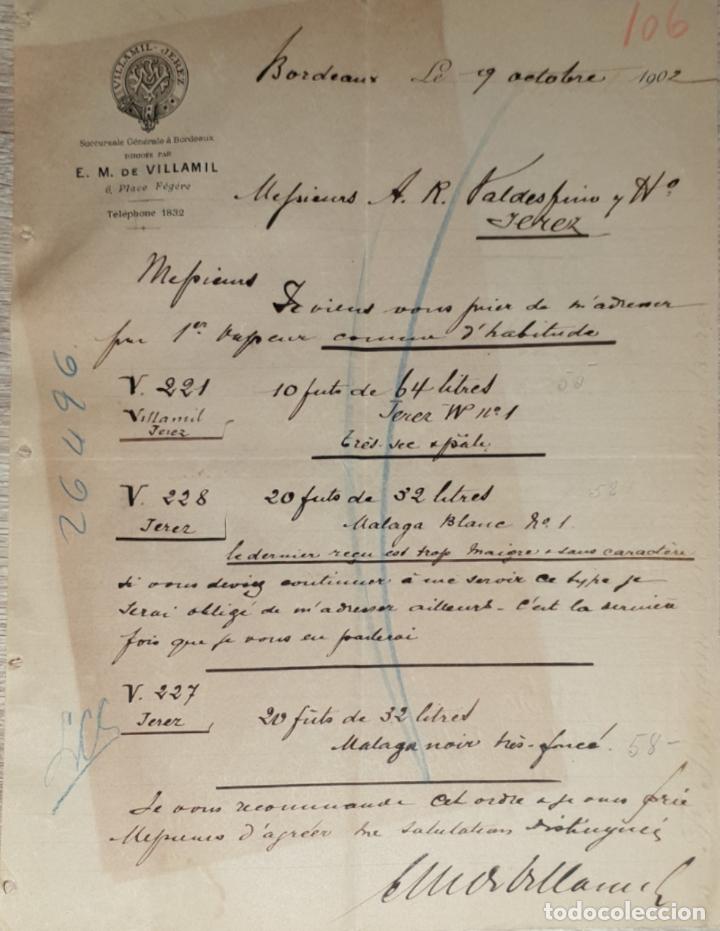 106
VILLAMIL - JEREZ
Succursale Générale à Bordeaux
DIRIGÉE PAR
E. M. DE VILLAMIL
6, Place Fégère
Téléphone 1832
Bordeaux Le 9 octobre 1902
Messieurs A. R. Valdespino y Hº
Jerez
Messieurs
Je viens vous prier de m'adresser
par 1er Vapeur comme d'habitude
V. 221 10 futs de 64 litres 55
Villamil Jerez W nº 1
Jerez
très sec & pâle
V. 228 20 futs de 32 litres 52
Jerez Malaga Blanc No. 1
le dernier reçu est trop maigre & sans caractère
si vous deviez continuer à me servir ce type je
serai obligé de m'adresser ailleurs - c'est la dernière
fois que je vous en parlerai
V. 227
Jerez 20 futs de 32 litres
Malaga noir très-foncé. 58-
Je vous recommande cet ordre & je vous prie
Messieurs d'agréer me salutations distinguées
26496
todocoleccion
todocoleccion.net